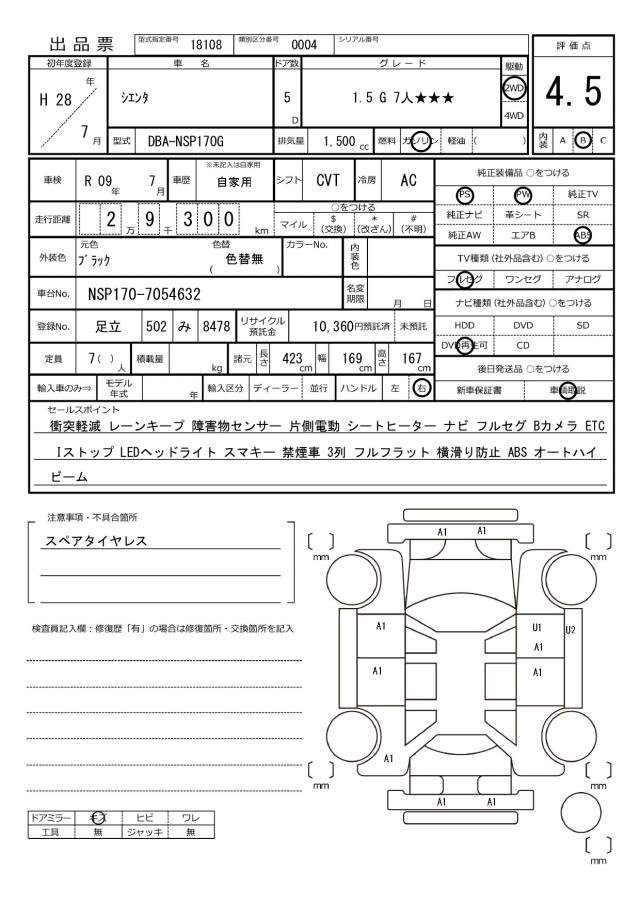 出品票
型式指定番号 18108 類別区分番号 0004 シリアル番号
初年度登録 車 名 ドア数 グレード 駆動 評価点
H 28 年 7 月 シエンタ 5 D 1.5 G 7人★★★ 2WD 4WD 4.5
型式 DBA-NSP170G 排気量 1.500 cc 燃料 ガソリン 軽油 ( ) 内装 A B C
車検 R 09 年 7 月 車歴 ※未記入は自家用 自家用 シフト CVT 冷房 AC
走行距離 2 万 9 千 3 0 0 km ○をつける マイル $ (交換) * (改ざん) # (不明)
外装色 元色 ブラック 色替 ( 色替無 ) カラーNo. 内装色
車台No. NSP170-7054632 名変期限 月 日
登録No. 足立 502 み 8478 リサイクル預託金 10,360円預託済 未預託
定員 7( ) 人 積載量 kg 諸元 長さ 423 cm 幅 169 cm 高さ 167 cm
輸入車のみ⇒ モデル年式 年 輸入区分 ディーラー 並行 ハンドル 左 右
純正装備品 ○をつける
PS PW 純正TV
純正ナビ 革シート SR
純正AW エアB ABS
TV種類 (社外品含む) ○をつける
フルセグ ワンセグ アナログ
ナビ種類 (社外品含む) ○をつける
HDD DVD SD
DVD再生可 CD
後日発送品 ○をつける
新車保証書 車輌取説
セールスポイント
衝突軽減 レーンキープ 障害物センサー 片側電動 シートヒーター ナビ フルセグ Bカメラ ETC
Iストップ LEDヘッドライト スマキー 禁煙車 3列 フルフラット 横滑り防止 ABS オートハイ
ビーム
注意事項・不具合箇所
スペアタイヤレス
検査員記入欄：修復歴「有」の場合は修復箇所・交換箇所を記入
ドアミラー キズ ヒビ ワレ
工具 無 ジャッキ 無
A1 A1
mm mm
A1 U1 U2
A1
A1 A1
A1
mm mm
A1 A1
mm